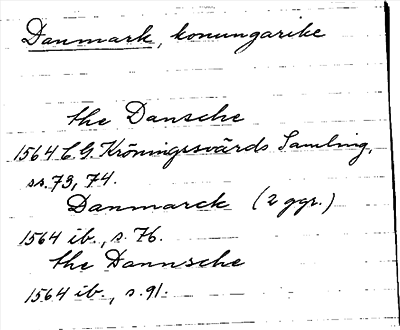 Danmark, konungarike
the Dansche
1564 C. G. Kröningssvärds Samling,
ss. 73, 74.
Danmarck (2 ggr.)
1564 ib., s. 76.
the Dannsche
1564 ib., s. 91.